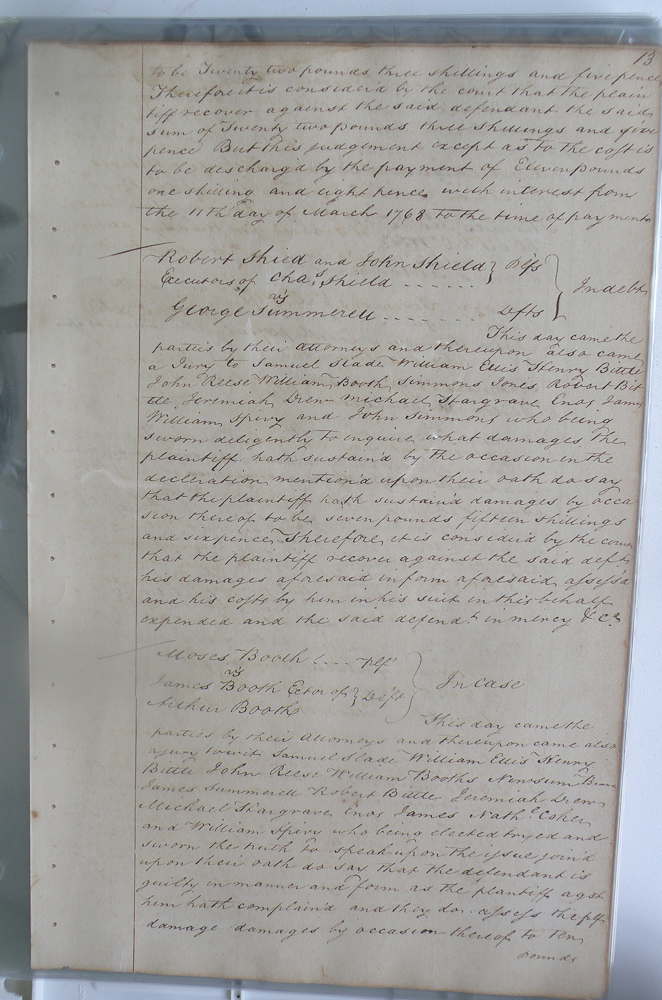 13
to be Twenty two pounds three shillings and five pence
Therefore it is consider'd by the court that the plain
tiff recover against the said defendant the said
sum of Twenty two pounds three shillings and five
pence But this judgement except as to the cost is
to be discharg'd by the payment of Eleven pounds
one shilling and eight pence with interest from
the 11th day of March 1768 to the time of payment
Robert Shield and John Shield } plfs
Executors of Chas. Shield ------
vs
} In debt
George Summerell ---------- Defts
This day came the
parties by their attorneys and thereupon also came
a Jury to Samuel Slade William Ellis Henry Bittle
John Reese William Booth Simmons Jones Robert Bit
tle Jeremiah Drew Michael Hargrave Enos James
William Spivy and John Simmons who being
sworn deligently to enquire what damages the
plaintiff hath sustain'd by the occasion in the
decleration mention'd upon their oath do say
that the plaintiff hath sustain'd damages by occa
sion thereof to be seven pounds fifteen shillings
and six pence Therefore it is consider'd by the court
that the plaintiff recover against the said deft
his damages aforesaid in form aforesaid assess'd
and his costs by him in his suit in this behalf
expended and the said defendt. in mercy &Ca.
Moses Booth ---- plf
vs
James Booth Ector of } Deft } In Case
Arthur Booth
This day came the
parties by their Attorneys and thereupon came also
a jury towit Samuel Slade William Ellis Henry
Bittle John Reese William Booths Newsum
James Summerell Robert Bittle Jeremiah Drew
Michael Hargrave Enos James Nathl.
and William Spivy who being elected tryed and
sworn the truth to speak upon the issue join'd
upon their oath do say that the defendant is
guilty in manner and form as the plaintiff agst
him hath complain'd and they do assess the plf
damage damages by occasion thereof to Ten
pounds